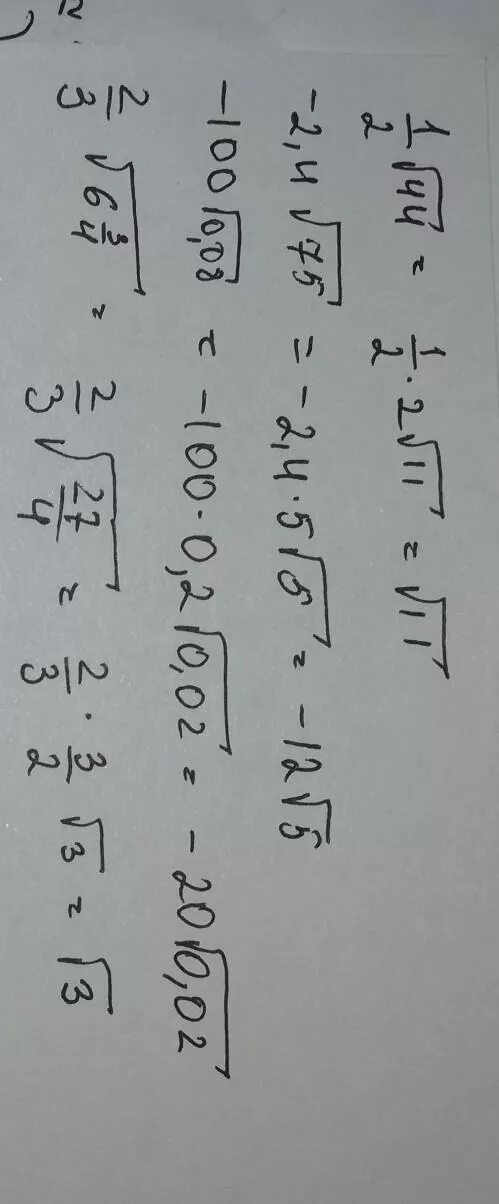 1/2 √44 = 1/2 · 2√11 = √11
-2,4 √75 = -2,4 · 5√5 = -12√5
-100 √0,08 = -100 · 0,2√0,02 = -20√0,02
2/3 √(6 3/4) = 2/3 √(27/4) = 2/3 · 3/2 √3 = √3